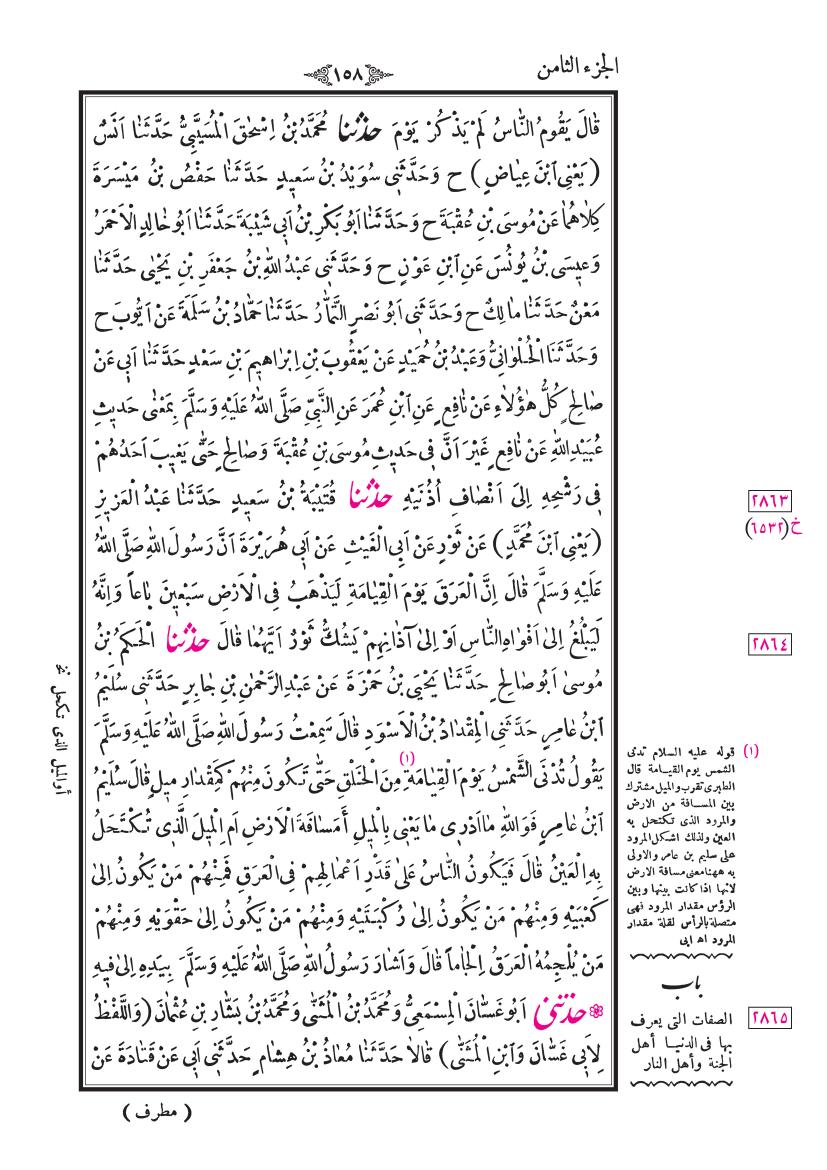 الجزء الثامن
١٥٨
قَالَ يَقُومُ النَّاسُ لَمْ يَذْكُرْ يَوْمَ حدثنا مُحَمَّدُ بْنُ اِسْحٰقَ الْمُسَيَّبِيُّ حَدَّثَنَا اَنَسٌ
(يَعْنِي ابْنَ عِيَاضٍ) ح وَحَدَّثَنِي سُوَيْدُ بْنُ سَعِيدٍ حَدَّثَنَا حَفْصُ بْنُ مَيْسَرَةَ
كِلَاهُمَا عَنْ مُوسَى بْنِ عُقْبَةَ ح وَحَدَّثَنَا اَبُو بَكْرِ بْنُ اَبِي شَيْبَةَ حَدَّثَنَا اَبُو خَالِدٍ الْاَحْمَرُ
وَعِيسَى بْنُ يُونُسَ عَنِ ابْنِ عَوْنٍ ح وَحَدَّثَنِي عَبْدُ اللّٰهِ بْنُ جَعْفَرِ بْنِ يَحْيٰى حَدَّثَنَا
مَعْنٌ حَدَّثَنَا مَالِكٌ ح وَحَدَّثَنِي اَبُو نَصْرٍ التَّمَّارُ حَدَّثَنَا حَمَّادُ بْنُ سَلَمَةَ عَنْ اَيُّوبَ ح
وَحَدَّثَنَا الْحُلْوَانِيُّ وَعَبْدُ بْنُ حُمَيْدٍ عَنْ يَعْقُوبَ بْنِ اِبْرَاهِيمَ بْنِ سَعْدٍ حَدَّثَنَا اَبِي عَنْ
صَالِحٍ كُلُّ هٰؤُلَاءِ عَنْ نَافِعٍ عَنِ ابْنِ عُمَرَ عَنِ النَّبِيِّ صَلَّى اللّٰهُ عَلَيْهِ وَسَلَّمَ بِمَعْنٰى حَدِيثِ
عُبَيْدِ اللّٰهِ عَنْ نَافِعٍ غَيْرَ اَنَّ فِي حَدِيثِ مُوسَى بْنِ عُقْبَةَ وَصَالِحٍ حَتّٰى يَغِيبَ اَحَدُهُمْ
فِي رَشْحِهِ اِلَى اَنْصَافِ اُذُنَيْهِ حدثنا قُتَيْبَةُ بْنُ سَعِيدٍ حَدَّثَنَا عَبْدُ الْعَزِيزِ
(يَعْنِي ابْنَ مُحَمَّدٍ) عَنْ ثَوْرٍ عَنْ اَبِي الْغَيْثِ عَنْ اَبِي هُرَيْرَةَ اَنَّ رَسُولَ اللّٰهِ صَلَّى اللّٰهُ
عَلَيْهِ وَسَلَّمَ قَالَ اِنَّ الْعَرَقَ يَوْمَ الْقِيَامَةِ لَيَذْهَبُ فِي الْاَرْضِ سَبْعِينَ بَاعًا وَاِنَّهُ
لَيَبْلُغُ اِلٰى اَفْوَاهِ النَّاسِ اَوْ اِلٰى آذَانِهِمْ يَشُكُّ ثَوْرٌ اَيَّهُمَا قَالَ حدثنا الْحَكَمُ بْنُ
مُوسٰى اَبُو صَالِحٍ حَدَّثَنَا يَحْيَى بْنُ حَمْزَةَ عَنْ عَبْدِ الرَّحْمٰنِ بْنِ جَابِرٍ حَدَّثَنِي سُلَيْمُ
ابْنُ عَامِرٍ حَدَّثَنِي الْمِقْدَادُ بْنُ الْاَسْوَدِ قَالَ سَمِعْتُ رَسُولَ اللّٰهِ صَلَّى اللّٰهُ عَلَيْهِ وَسَلَّمَ
يَقُولُ تُدْنَى الشَّمْسُ يَوْمَ الْقِيَامَةِ (١) مِنَ الْخَلْقِ حَتّٰى تَكُونَ مِنْهُمْ كَمِقْدَارِ مِيلٍ قَالَ سُلَيْمُ
ابْنُ عَامِرٍ فَوَاللّٰهِ مَا اَدْرِي مَا يَعْنِي بِالْمِيلِ أَمَسَافَةَ الْاَرْضِ اَمِ الْمِيلَ الَّذِي تُكْتَحَلُ
بِهِ الْعَيْنُ قَالَ فَيَكُونُ النَّاسُ عَلٰى قَدْرِ اَعْمَالِهِمْ فِي الْعَرَقِ فَمِنْهُمْ مَنْ يَكُونُ اِلٰى
كَعْبَيْهِ وَمِنْهُمْ مَنْ يَكُونُ اِلٰى رُكْبَتَيْهِ وَمِنْهُمْ مَنْ يَكُونُ اِلٰى حَقْوَيْهِ وَمِنْهُمْ
مَنْ يُلْجِمُهُ الْعَرَقُ اِلْجَامًا قَالَ وَاَشَارَ رَسُولُ اللّٰهِ صَلَّى اللّٰهُ عَلَيْهِ وَسَلَّمَ بِيَدِهِ اِلٰى فِيهِ
حدثني اَبُو غَسَّانَ الْمِسْمَعِيُّ وَمُحَمَّدُ بْنُ الْمُثَنّٰى وَمُحَمَّدُ بْنُ بَشَّارِ بْنِ عُثْمَانَ (وَاللَّفْظُ
لِاَبِي غَسَّانَ وَابْنِ الْمُثَنّٰى) قَالَا حَدَّثَنَا مُعَاذُ بْنُ هِشَامٍ حَدَّثَنِي اَبِي عَنْ قَتَادَةَ عَنْ
(مطرف)
٢٨٦٣
خ (٦٥٣٢)
٢٨٦٤
(١) قوله عليه السلام تدنى
الشمس يوم القيامة قال
الطبرى تقرب والميل مشترك
بين المسافة من الارض
والمرود الذى تكتحل به
العين ولذلك اشكل المرود
على سليم بن عامر والاولى
به ههنا معنى مسافة الارض
لانها اذا كانت بينها وبين
الرؤس مقدار المرود فهى
متصلة بالرأس لقلة مقدار
المرود اه ابى
باب
٢٨٦٥
الصفات التى يعرف
بها فى الدنيا أهل
الجنة وأهل النار
أوالميل الذى تكحل نخ